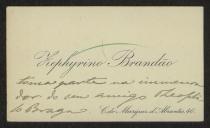 Zephyrino Brandão
toma parte na immensa
dor do seu amigo Theophi-
lo Braga
C. do Marquez d'Abrantes, 40.